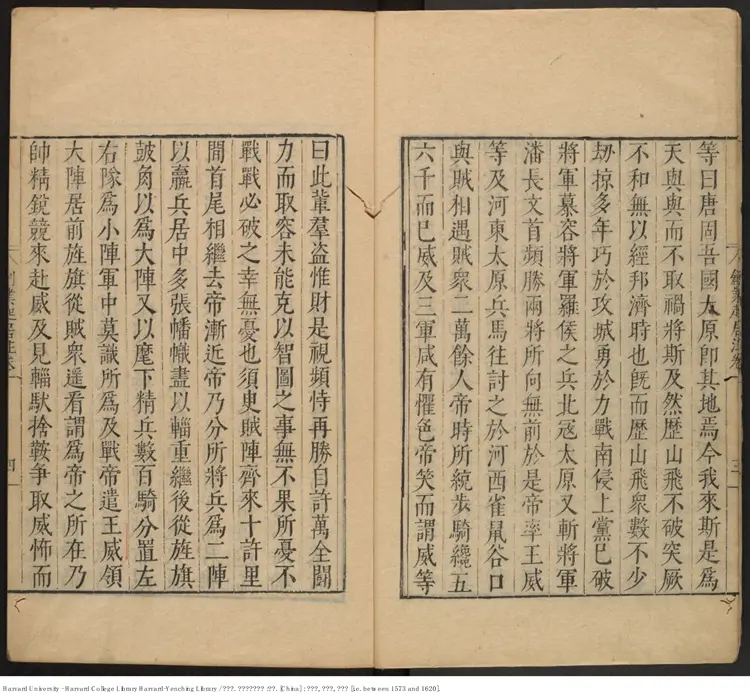 等曰唐固吾國太原即其地焉今我來斯是爲
天與與而不取禍將斯及然歷山飛不破突厥
不和無以經邦濟時也既而歷山飛衆數不少
劫掠多年巧於攻城勇於力戰南侵上黨已破
將軍慕容將軍羅侯之兵北冦太原又斬將軍
潘長文首頻勝兩將所向無前於是帝率王威
等及河東太原兵馬往討之於河西雀鼠谷口
與賊相遇賊衆二萬餘人帝時所統步騎纔五
六千而已威及三軍咸有懼色帝笑而謂威等
三
曰此輩羣盗惟財是視頻恃再勝自許萬全鬪
力而取容未能克以智圖之事無不果所憂不
戰戰必破之幸無憂也須叟賊陣齊來十許里
間首尾相繼去帝漸近帝乃分所將兵爲二陣
以羸兵居中多張幡幟盡以輜重繼後從旌旗
皷角以爲大陣又以麾下精兵數百騎分置左
右隊爲小陣軍中莫識所爲及戰帝遣王威領
大陣居前旌旗從賊衆遥看謂爲帝之所在乃
帥精鋭競來赴威及見輜馱捨鞍争取威怖而
四
Harvard University - Harvard College Library Harvard-Yenching Library / ???. ??????? :??. [China] : ???, ???, ??? [i.e. between 1573 and 1620].